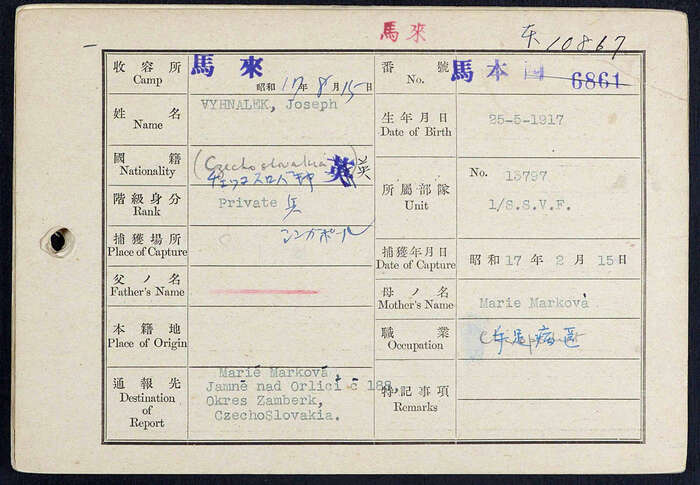 馬來
10867
收容所
Camp
馬來
昭和17年8月15日
番號
No.
馬本 6861
姓名
Name
VYHNALEK, Joseph
生年月日
Date of Birth
25-5-1917
國籍
Nationality
(Czechoslovakia)
チェッコスロバキヤ
英 英
階級身分
Rank
Private 兵
所屬部隊
Unit
No. 13797
1/S.S.V.F.
捕獲場所
Place of Capture
シンガポール
捕獲年月日
Date of Capture
昭和17年2月15日
父ノ名
Father's Name
母ノ名
Mother's Name
Marie Marková
本籍地
Place of Origin
職業
Occupation
手足病醫
通報先
Destination
of
Report
Marie Marková,
Jamné nad Orlicí č 188,
Okres Zamberk,
CzechoSlovakia.
特記事項
Remarks